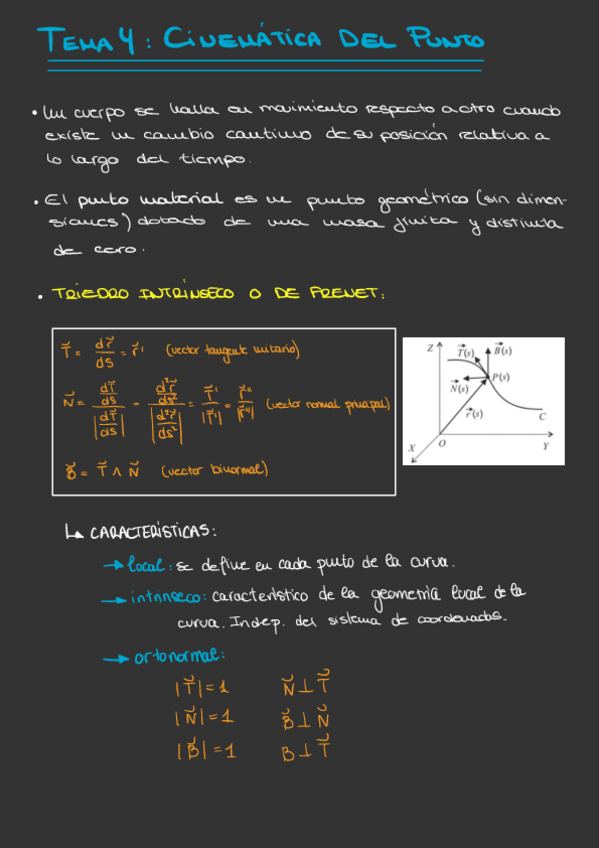 TEMA 4: CINEMÁTICA DEL PUNTO
• Un cuerpo se halla en movimiento respecto a otro cuando
existe un cambio continuo de su posición relativa a
lo largo del tiempo.
• El punto material es un punto geométrico (sin dimen-
siones) dotado de una masa finita y distinta
de cero.
• TRIEDRO INTRÍNSECO O DE FRENET:
T⃗ = dr⃗/ds = r⃗' (vector tangente unitario)
N⃗ = (dT⃗/ds)/|dT⃗/ds| = (d²r⃗/ds²)/|d²r⃗/ds²| = T⃗'/|T⃗'| = r⃗''/|r⃗''| (vector normal principal)
B⃗ = T⃗ ∧ N⃗ (vector binormal)
Z T⃗(s) B⃗(s)
N⃗(s) P(s)
r⃗(s) C
X O Y
↳ CARACTERÍSTICAS:
→ local: se define en cada punto de la curva.
→ intrínseco: característico de la geometría local de la
curva. Indep. del sistema de coordenadas.
→ ortonormal:
|T⃗| = 1 N⃗ ⊥ T⃗
|N⃗| = 1 B⃗ ⊥ N⃗
|B⃗| = 1 B ⊥ T⃗